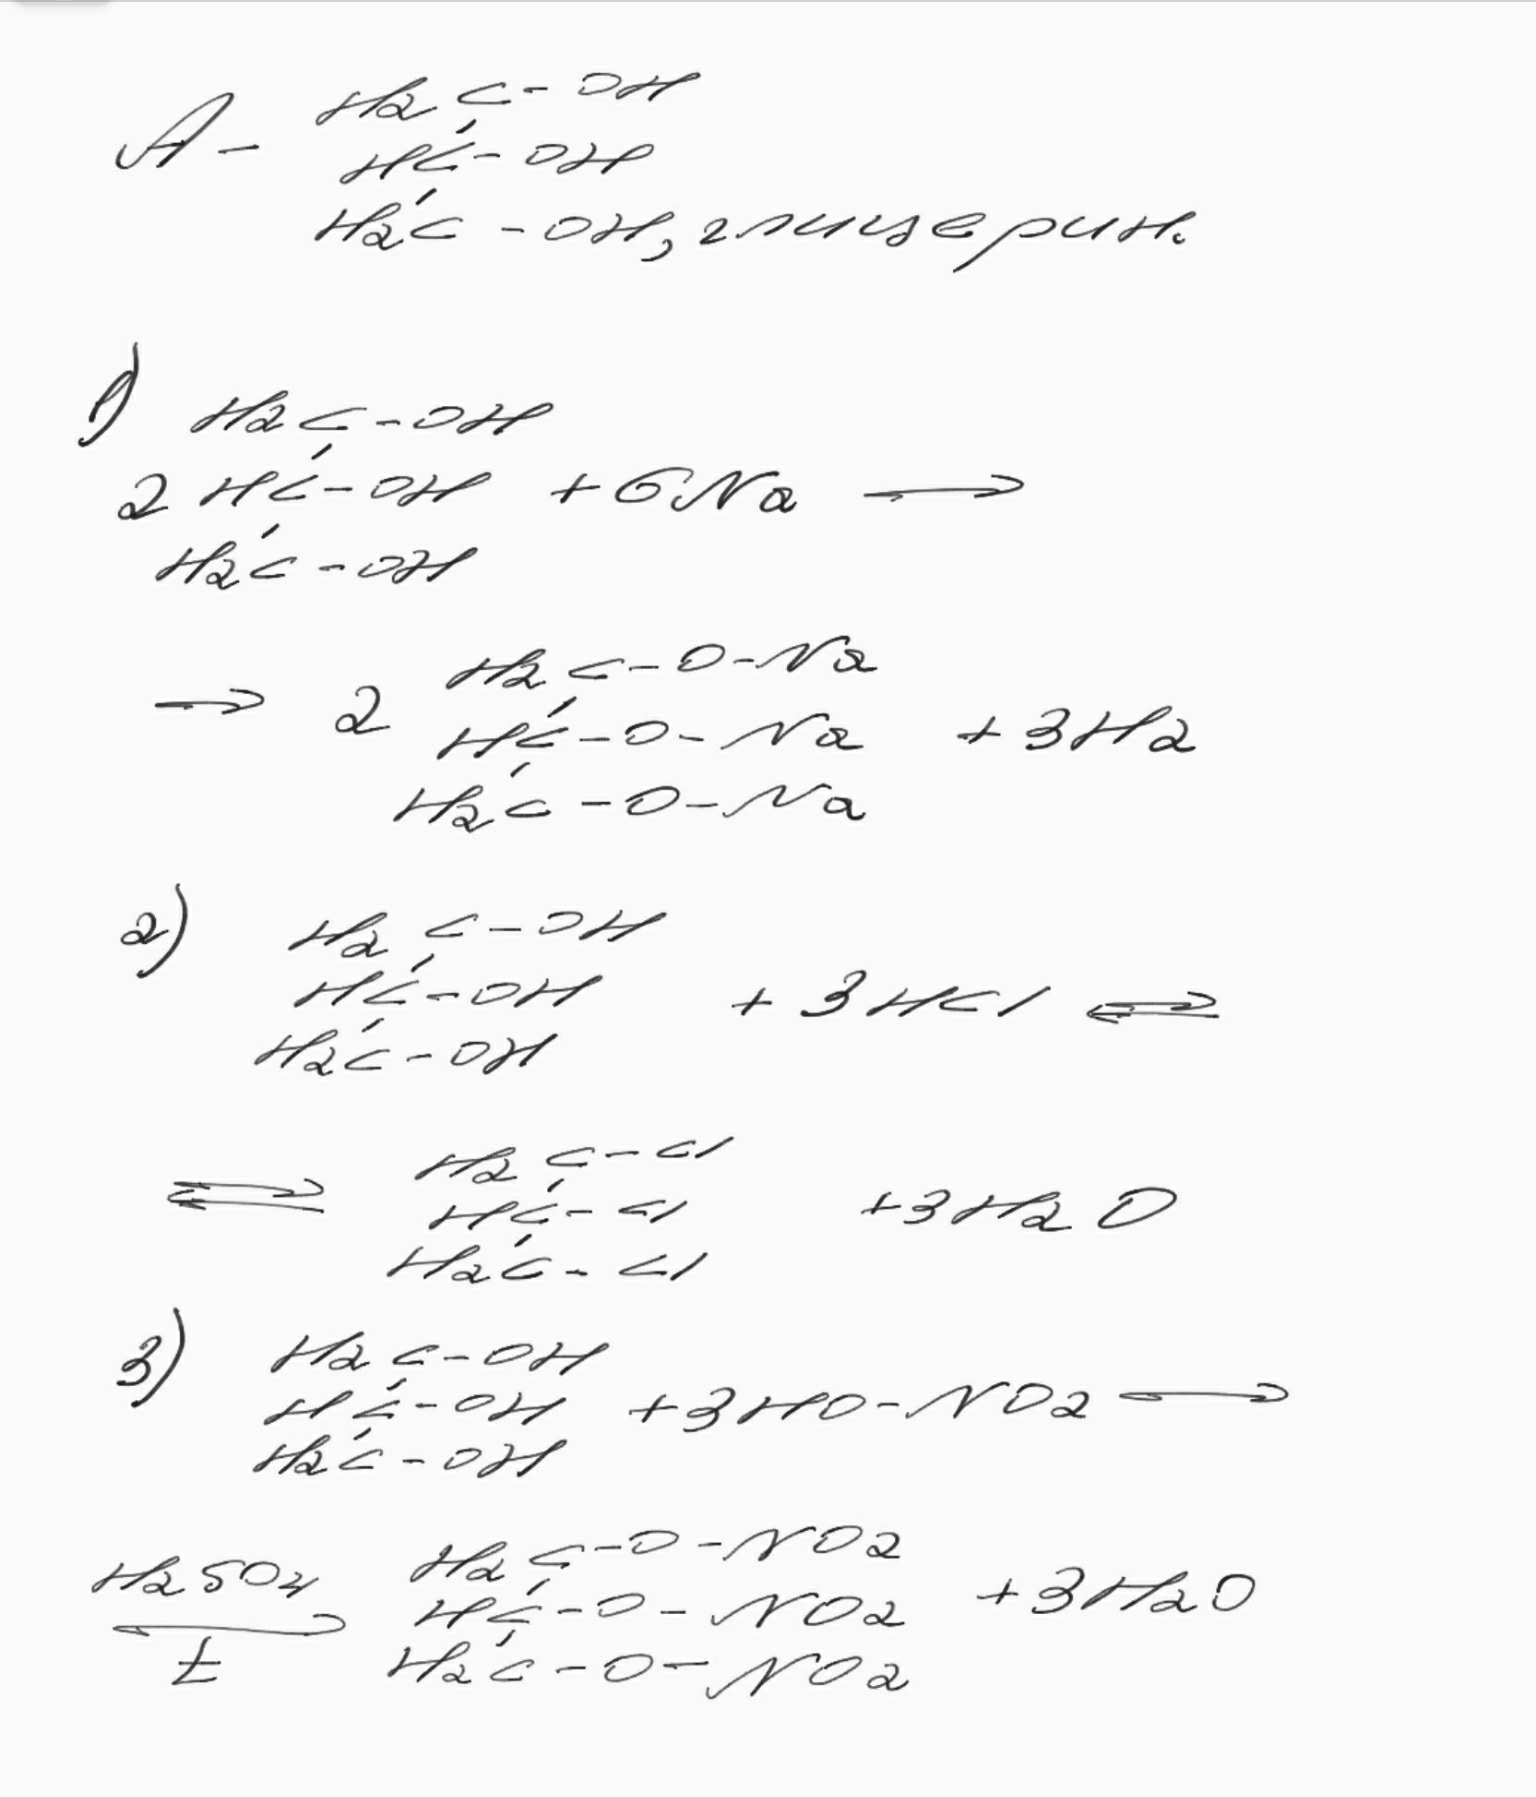 H2C-OH
A- HC-OH
H2C-OH, глицерин.
1) H2C-OH
2 HC-OH +6Na →
H2C-OH
H2C-O-Na
→ 2 HC-O-Na +3H2
H2C-O-Na
2) H2C-OH
HC-OH + 3HCl ⇌
H2C-OH
H2C-Cl
⇌ HC-Cl +3H2O
H2C-Cl
3) H2C-OH
HC-OH +3HO-NO2 →
H2C-OH
H2SO4 H2C-O-NO2
→ HC-O-NO2 +3H2O
t H2C-O-NO2